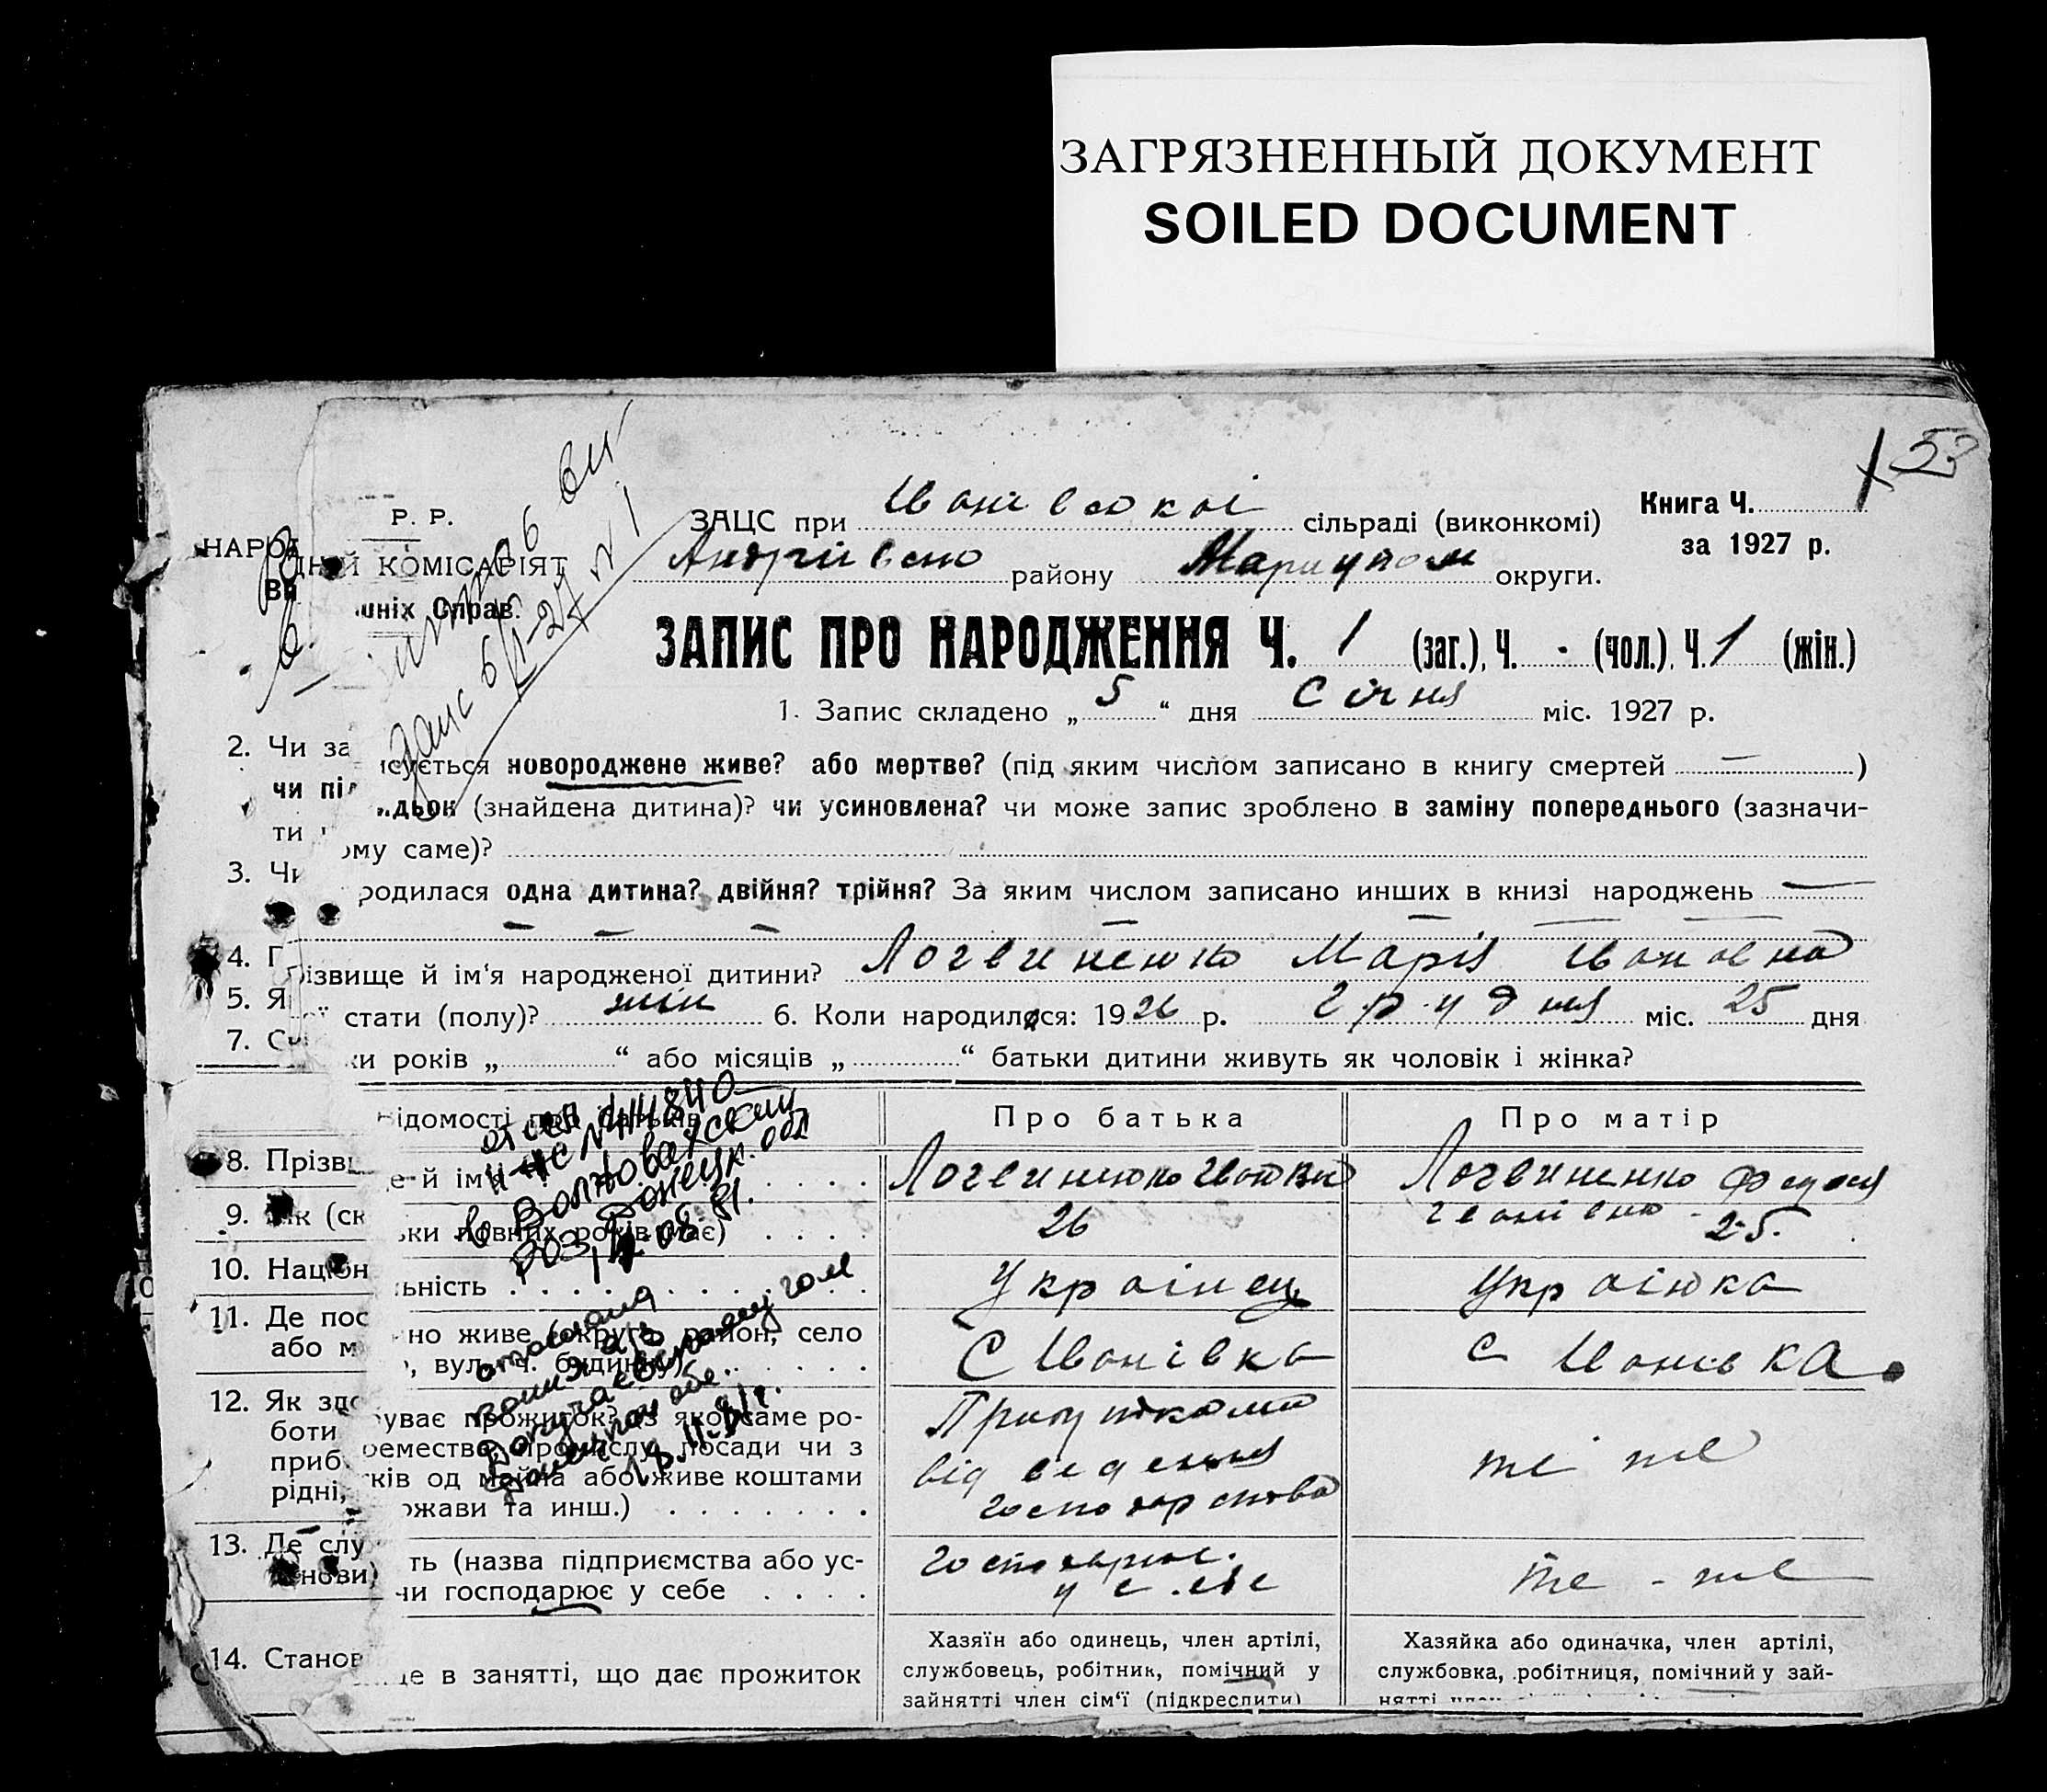 ЗАГРЯЗНЕННЫЙ ДОКУМЕНТ
SOILED DOCUMENT
53
Р. Р.
ЗАЦС при Іванівської сільраді (виконкомі)
Книга Ч.
НАРО ДНІЙ КОМІСАРІЯТ
Андріївського району Маріупол округи.
за 1927 р.
Вн шніх Справ.
ЗАПИС ПРО НАРОДЖЕННЯ Ч. 1 (заг.), Ч. - (чол.), Ч. 1 (жін.)
1. Запис складено „5“ дня Січня міс. 1927 р.
2. Чи за исується новороджене живе? або мертве? (під яким числом записано в книгу смертей — )
чи під идьок (знайдена дитина)? чи усиновлена? чи може запис зроблено в заміну попереднього (зазначи-
ти ому саме)?
3. Чи родилася одна дитина? двійня? трійня? За яким числом записано инших в книзі народжень —
4. Прізвище й ім‘я народженої дитини? Логвиненко Марія Івановна
5. Якої стати (полу)? жін 6. Коли народилася: 1926 р. грудня міс. 25 дня
7. Скі ки років „ “ або місяців „ “ батьки дитини живуть як чоловік і жінка?
відомості про батьків
Про батька
Про матір
8. Прізвище й ім‘я
Логвиненко Іван
Логвиненко Федося
9. Вік (скільки повних років має)
26
25.
10. Національність
Українець
Українка
11. Де постійно живе (округа, район, село
або м , вул., ч. будинку)
С Іванівка
с Іванівка
12. Як здобуває прожиток? (з якого саме ро-
боти ремества, промислу, посади чи з
прибутків од майна або живе коштами
рідні, держави та инш.)
Прибутками
від ведення
господарства
ті же
13. Де служить (назва підприємства або ус-
танови) чи господарює у себе
господарює
у себе
те - же
14. Становище в занятті, що дає прожиток
Хазяїн або одинець, член артілі,
службовець, робітник, помічний у
зайнятті член сім‘ї (підкреслити)
Хазяйка або одиначка, член артілі,
службовка, робітниця, помічний у зай-
нятті член